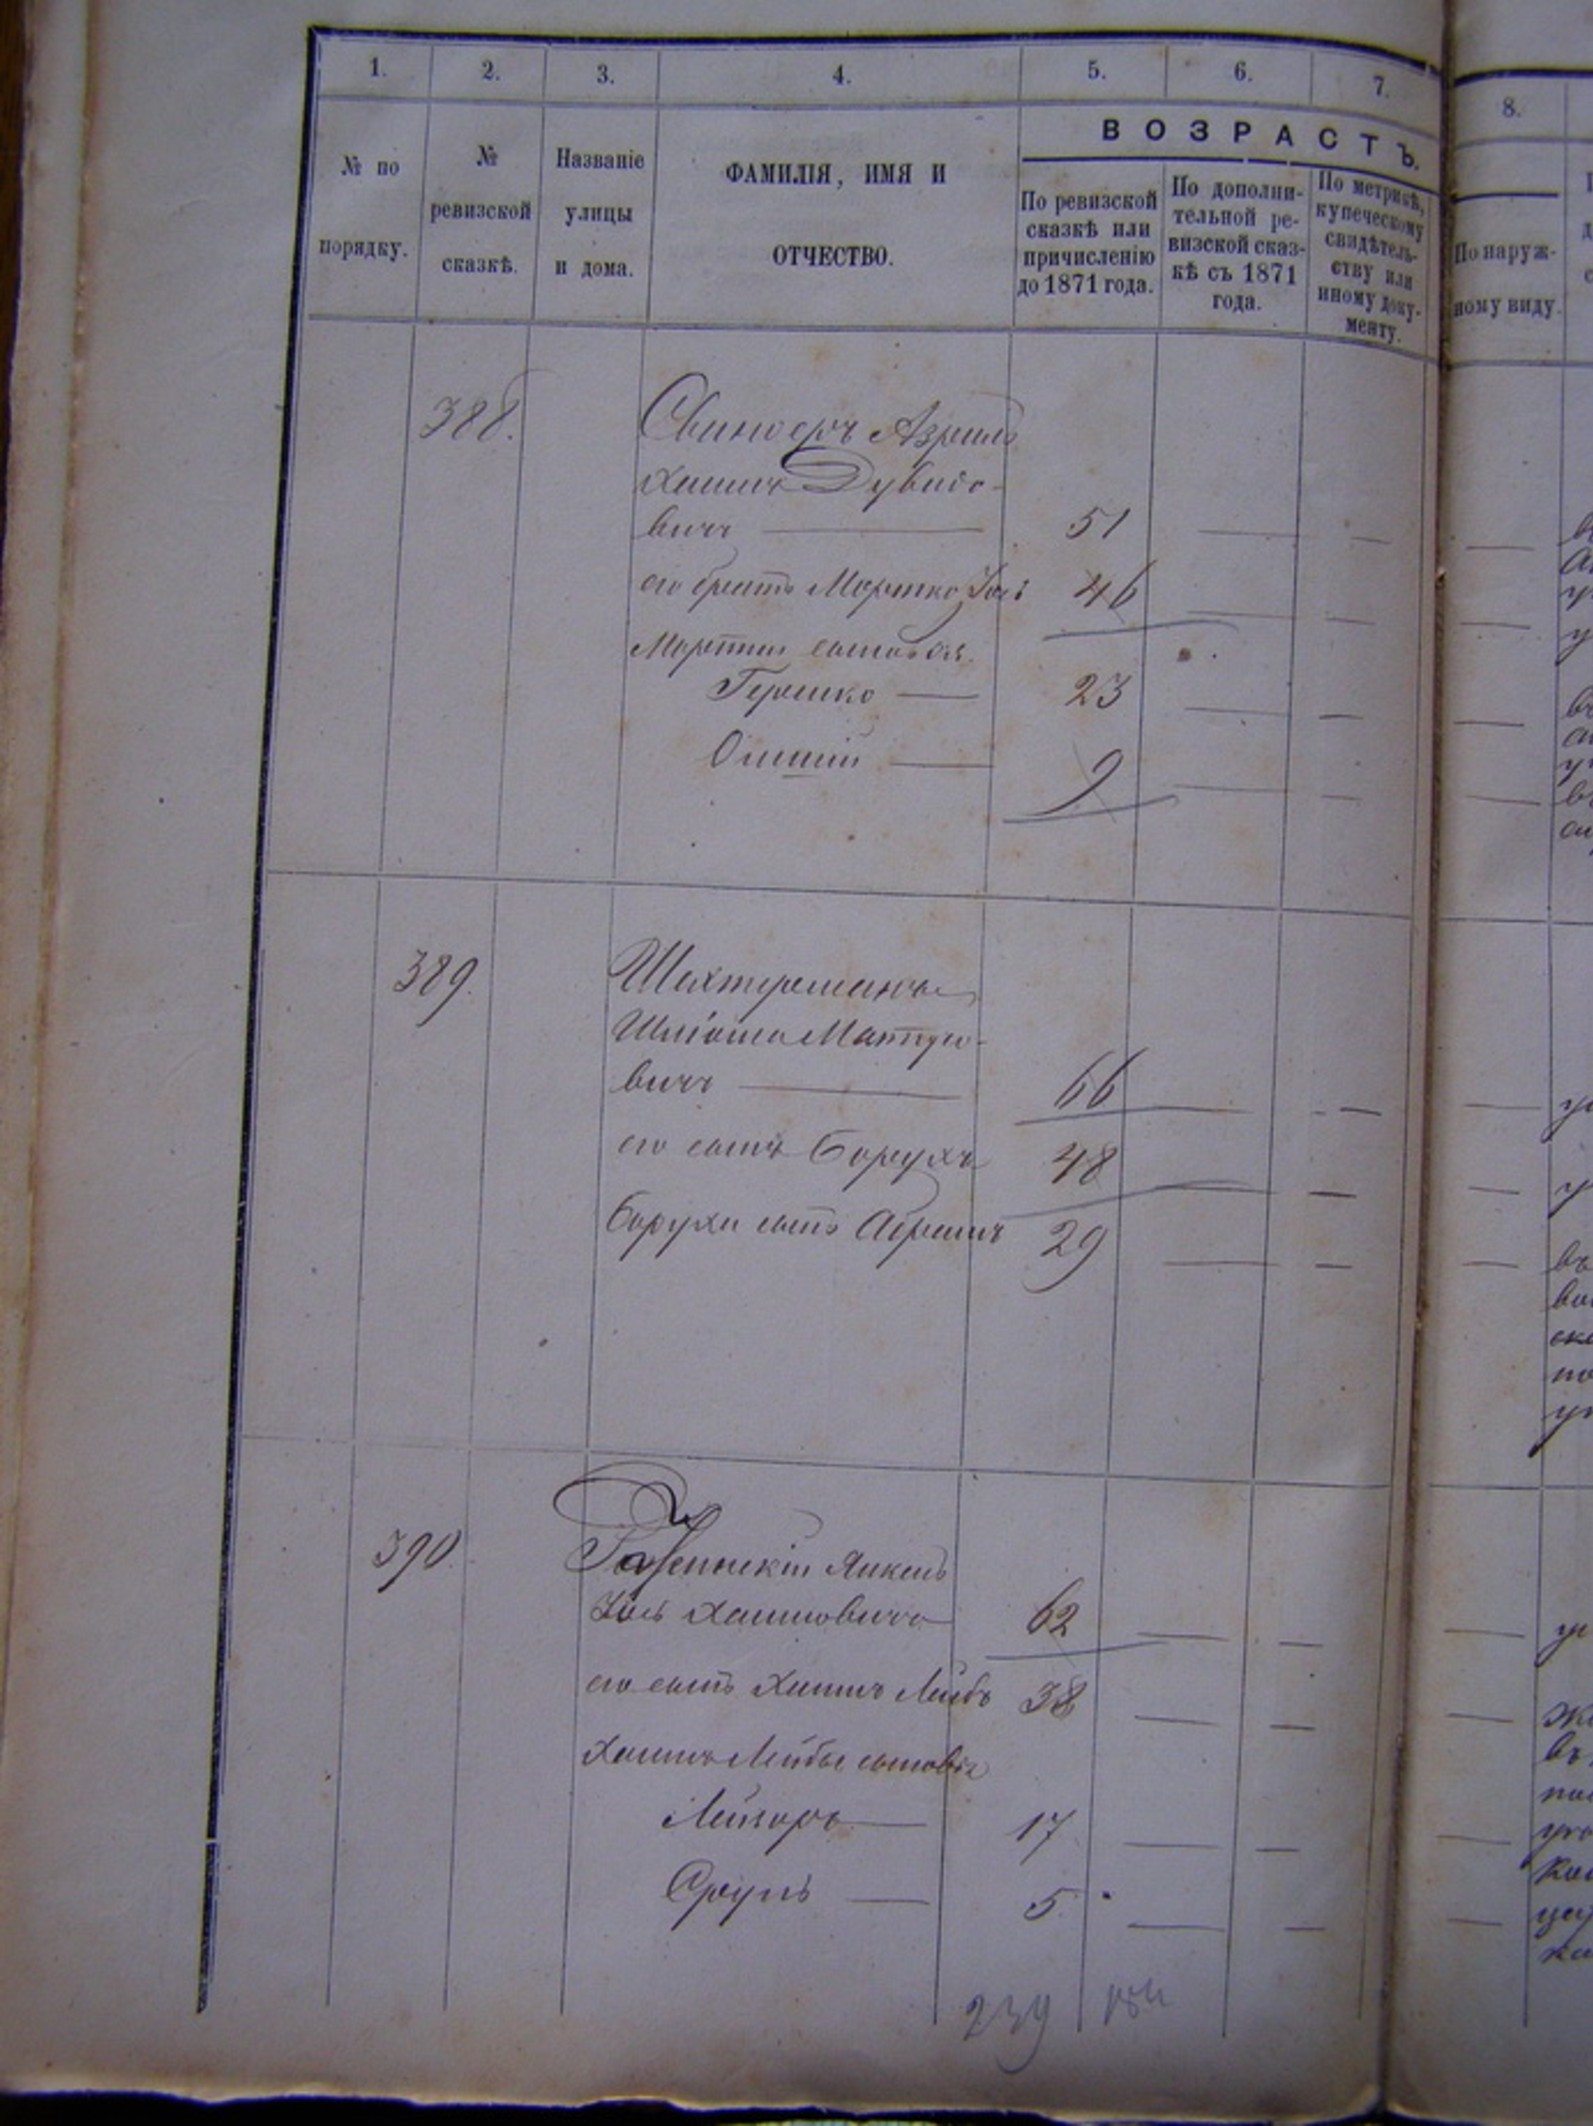 1. 2. 3. 4. 5. 6. 7. 8.
№ по порядку.
№ ревизской сказкѣ.
Названіе улицы и дома.
ФАМИЛІЯ, ИМЯ И ОТЧЕСТВО.
ВОЗРАСТЪ.
По ревизской сказкѣ или причисленію до 1871 года.
По дополнительной ревизской сказкѣ съ 1871 года.
По метрикѣ, купеческому свидѣтельству или иному документу.
По наружному виду.
388.
Азриль
Хаимъ Дувидо-
вичъ — 51 — —
его братъ Мортко Іось 46 — — —
Мортки сыновья
Гершко — 23 — — —
9 — — —
389.
Шахтерманъ
Шліома
вичъ — 66 — — —
его сынъ Борухъ 48 — — —
Боруха сынъ Абрамъ 29 — — —
390.
Янкель
Іось Хаимовичъ 62 — — —
его сынъ Хаимъ Лейбъ 38 — — —
Хаимъ Лейбы сыновья
Лейзоръ — 17 — — —
Сруль — 5. — — —
239